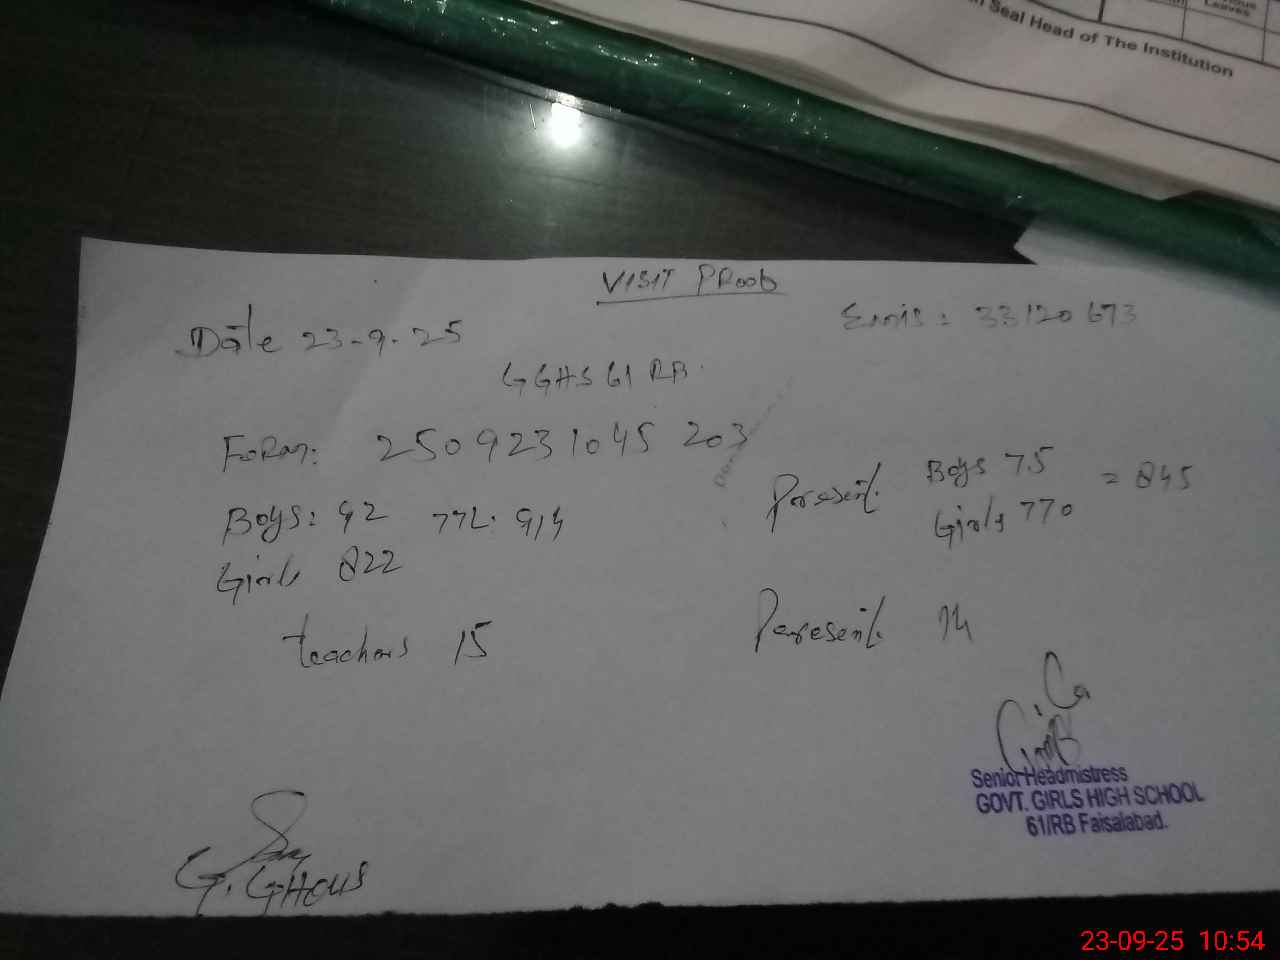 Seal Head of The Institution
Leaves
VISIT PRoob
Date 23-9-25
Emis: 33120673
GGHS 61 RB.
FoRm: 2509231045203
Boys: 92 772. 914
Girls 822
Paresent Boys 75 = 845
Girls 770
teachors 15
Paresent 14
G. GHOUS
Senior Headmistress
GOVT. GIRLS HIGH SCHOOL
61/RB Faisalabad.
23-09-25 10:54